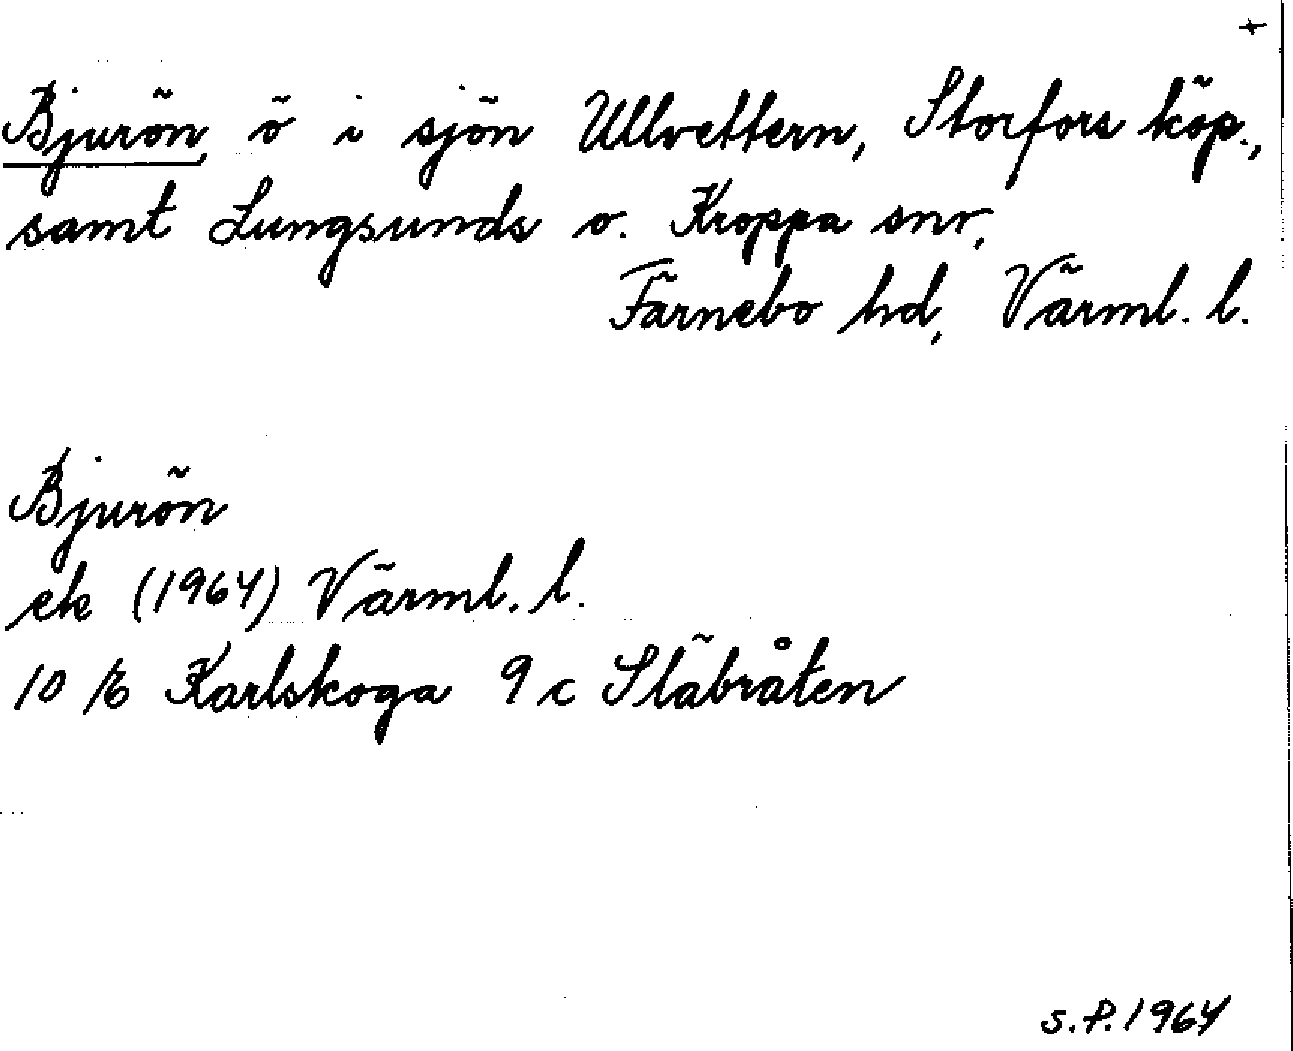 +
Bjurön, ö i sjön Ullvettern, Storfors köp.,
samt Lungsunds o. Kroppa snr,
Färnebo hd, Värml. l.
Bjurön
ek (1964) Värml. l.
10 1/6 Karlskoga 9 c Släbråten
S.P. 1964